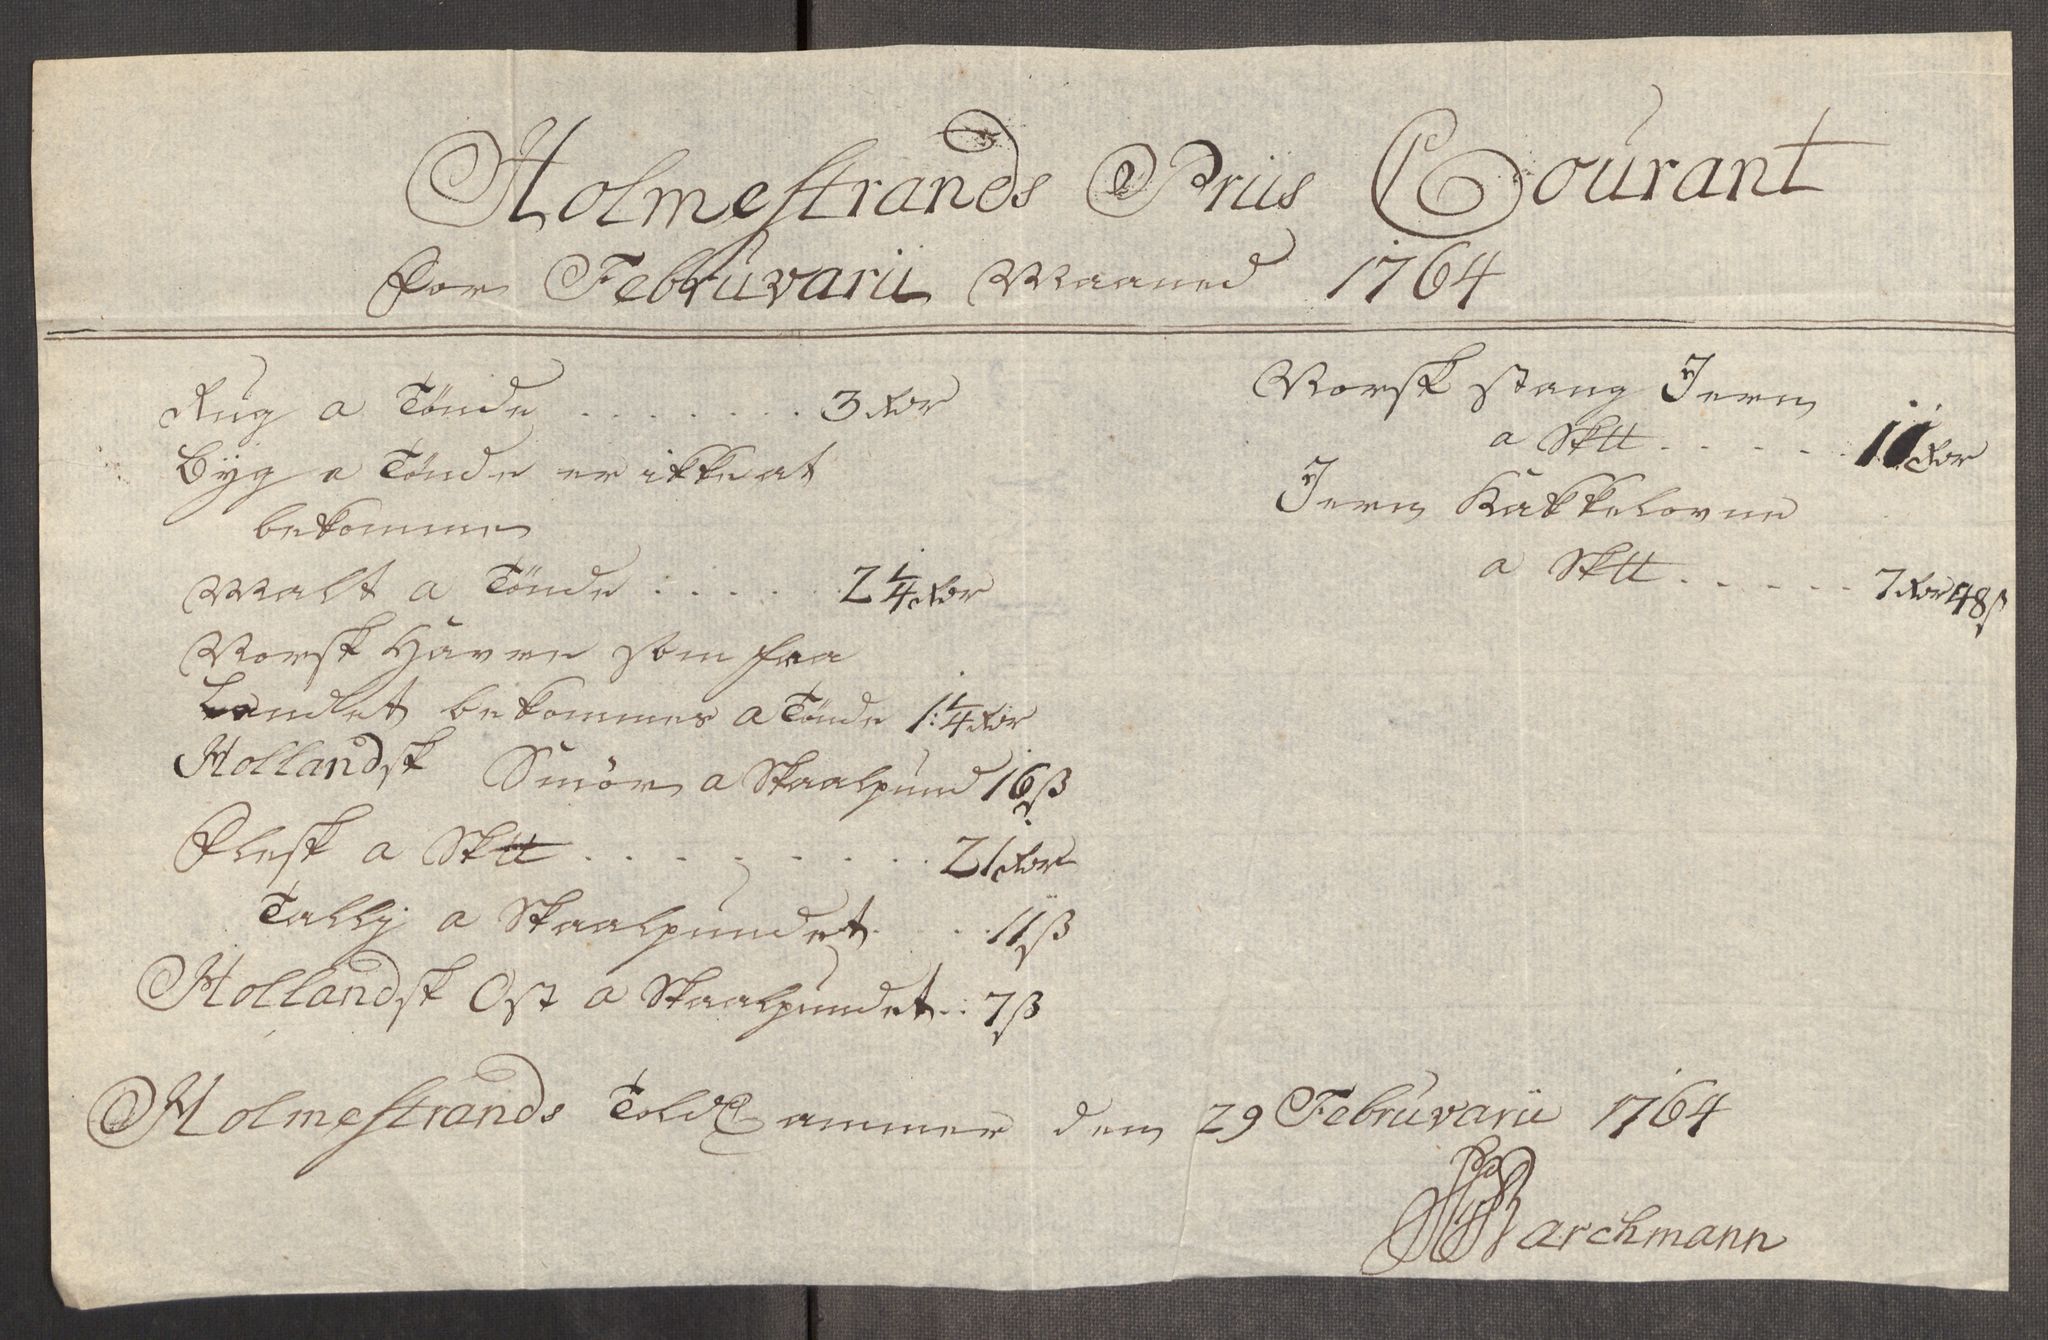 Holmestrands Priis Courant
for Februvarii Maaned 1764
Rug a Tönde . . . . . . . 3 Rdr
Byg a Tönde er ikke at
bekomme
Malt a Tönde . . . . . . 2 1/4 Rdr
Norsk Havre som fra
Landet bekommes a Tönde 1 1/4 Rdr
Hollandsk Smör a Skaalpund 16 ß
Flesk a Sk℔ . . . . . . . . 21 Rdr
Tallig a Skaalpundet . . . 11 ß
Hollandsk Ost a Skaalpundet . . 7 ß
Norsk stang Jern
a Sk℔ . . . . . . 11 Rdr
Jern Kakkelovne
a Sk℔ . . . . . . 7 Rdr 48 ß
Holmestrands ToldCammer den 29 Februvarii 1764